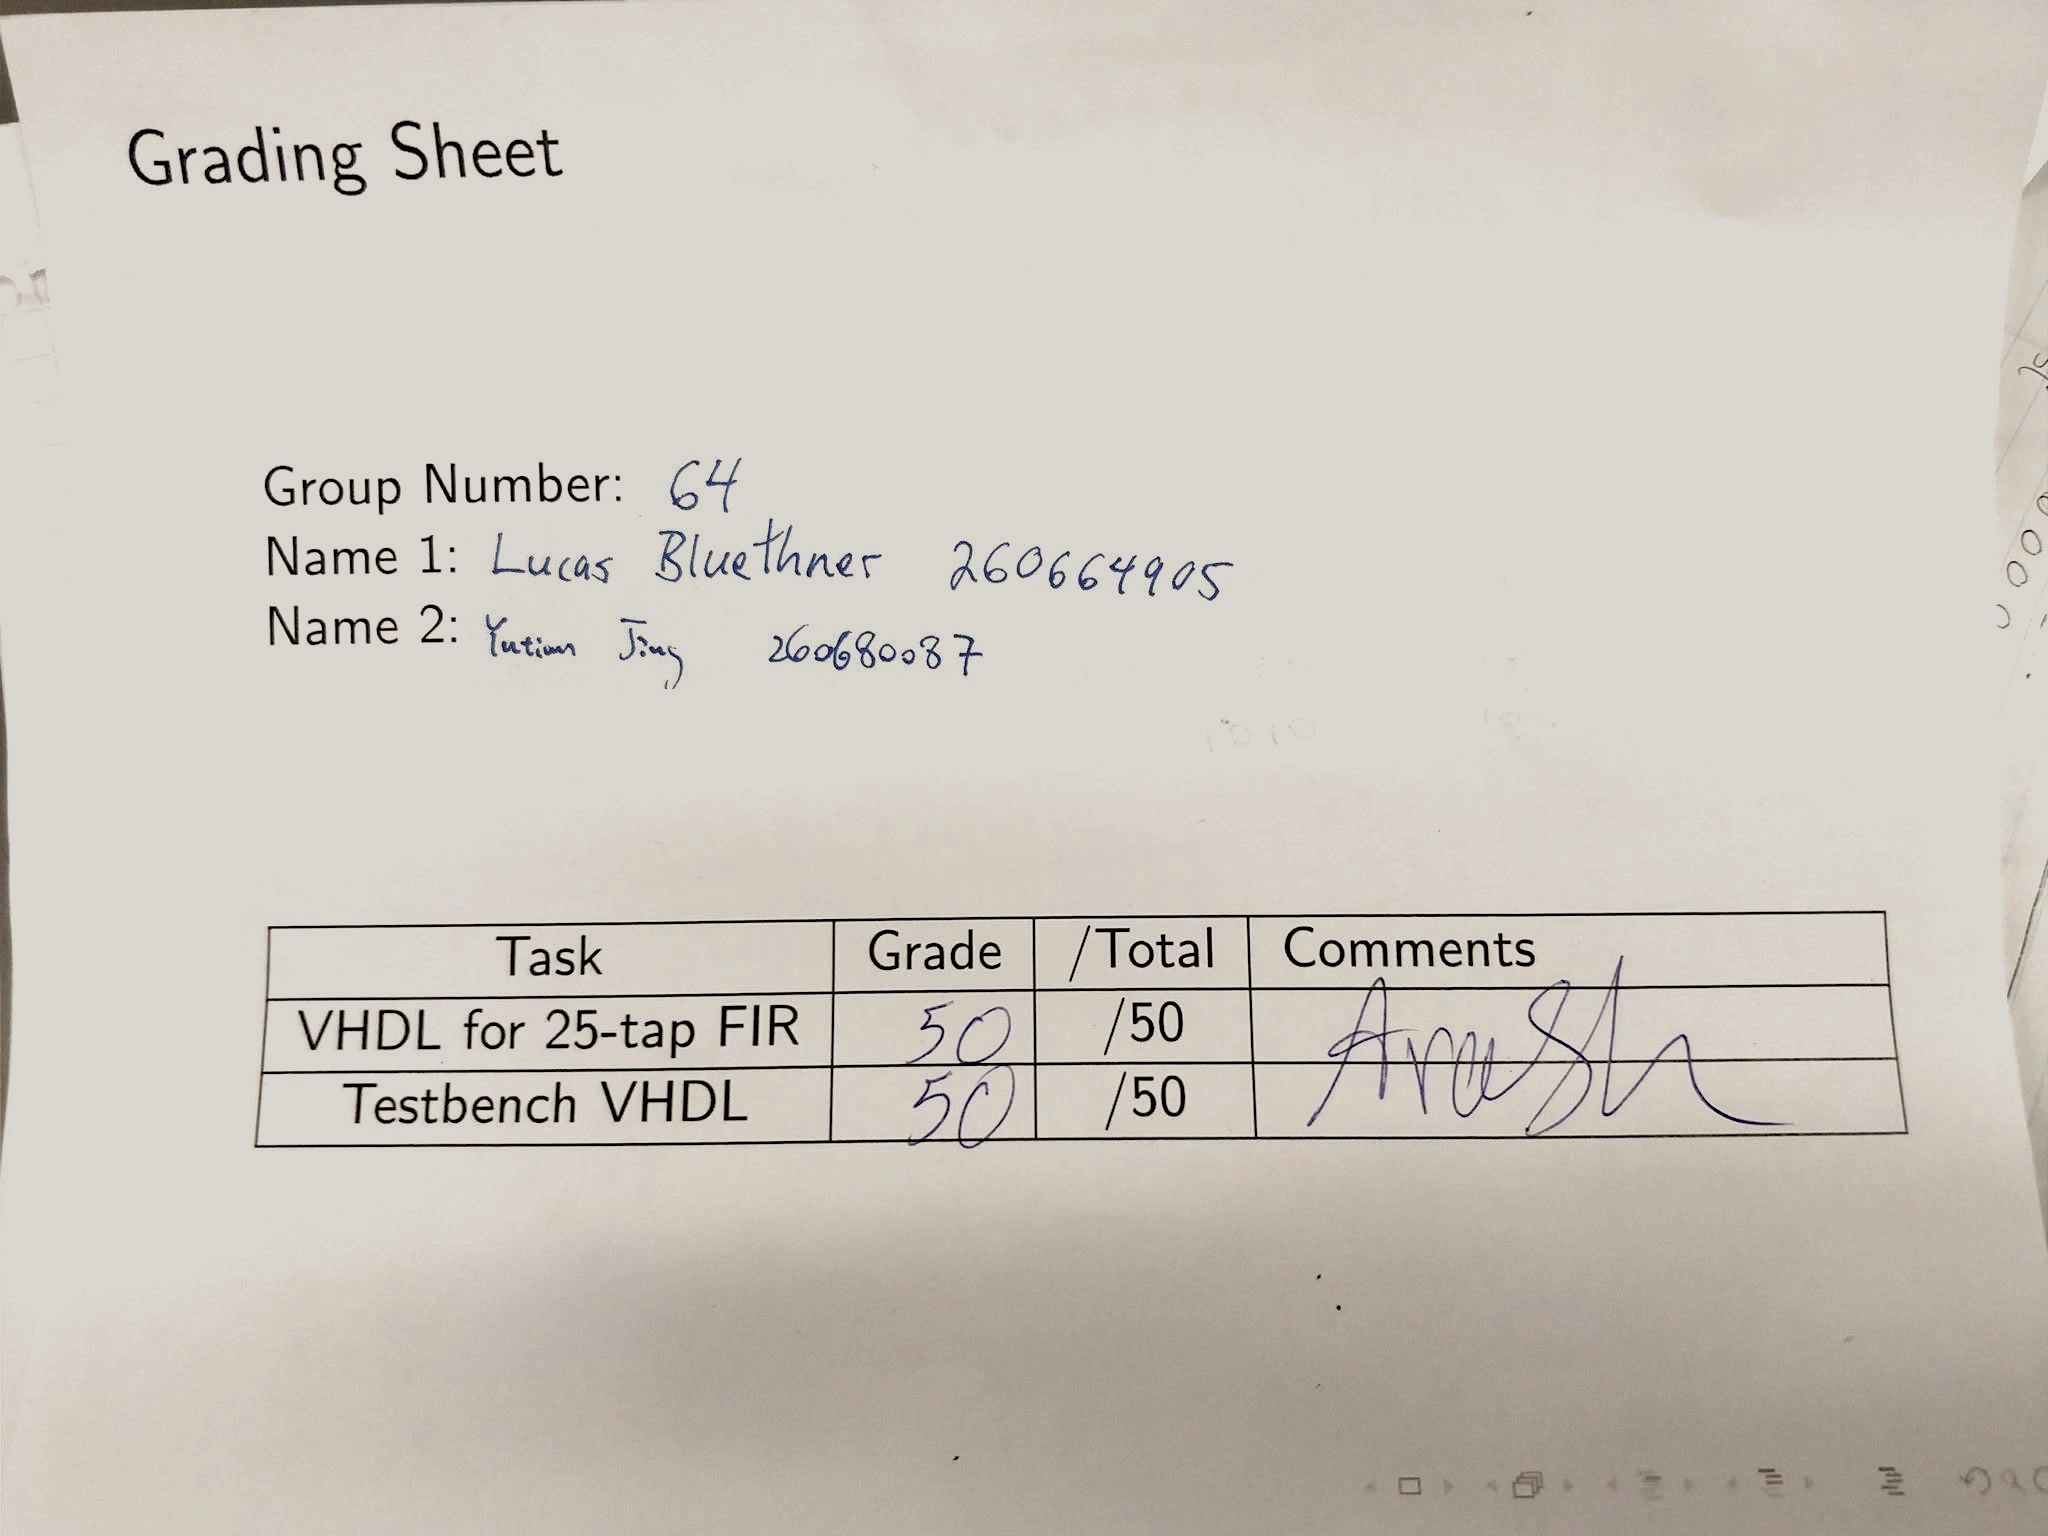 Grading Sheet
Group Number: 64
Name 1: Lucas Bluethner 260664905
Name 2: Yutian Jing 260680087
Task Grade /Total Comments
VHDL for 25-tap FIR 50 /50 Arash
Testbench VHDL 50 /50